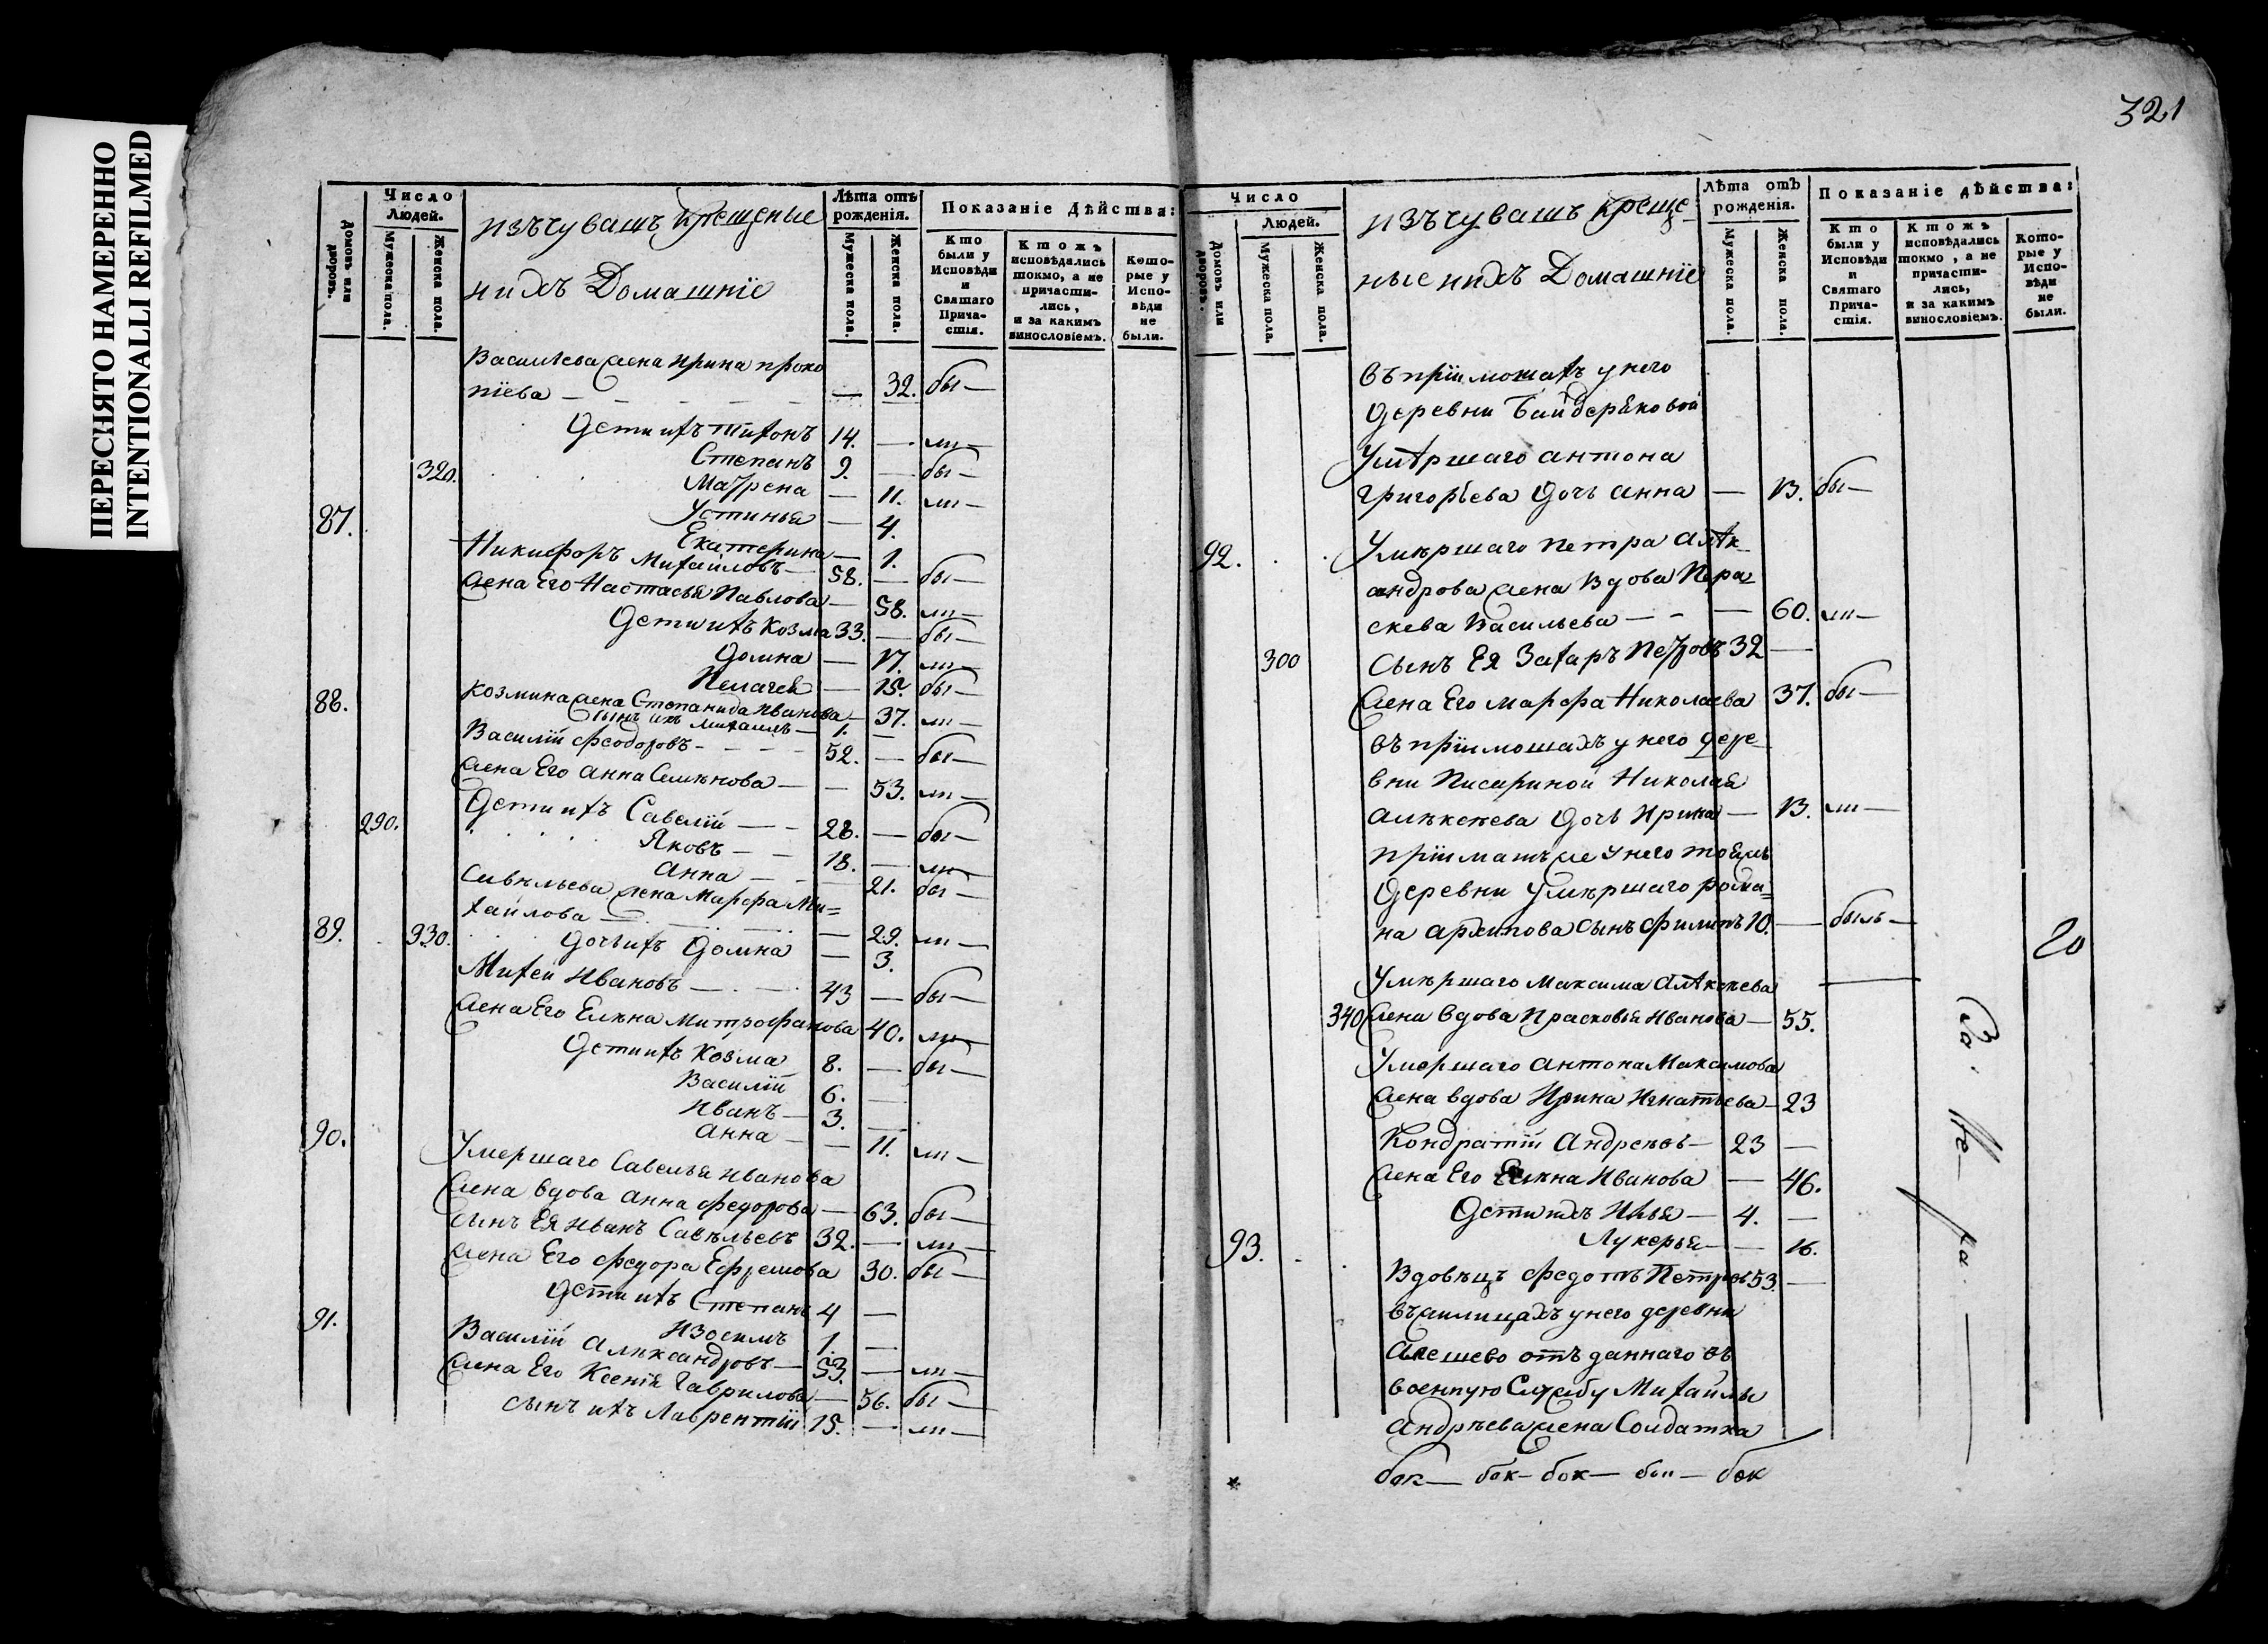 ПЕРЕСНЯТО НАМЕРЕННО
INTENTIONALLI REFILMED
321
Число
Людей.
Домовъ или дворовъ.
Мужеска пола.
Женска пола.
изъ чувашъ крещеные
и ихъ Домашнїе
Лѣта отъ рожденія.
Мужеска пола.
Женска пола.
Показаніе Дѣйства:
Кто были у Исповѣди и Святаго Прича-стія.
Ктожъ исповѣдались шокмо, а не причасти-лись, и за какимъ винословіемъ.
Кото-рые у Испо-вѣди не были.
Васильева жена Ирина проко
пїева — — 32. бы—
Дети ихъ тихонъ 14. — ли—
Степанъ 9. — бы—
320. Матрена — 11. ли—
Устинья — 4.
Екатерина — 1.
87. Никифоръ Михайловъ — 58. — бы—
жена Его Настасья Павлова — 58. ли—
Дети ихъ Козма 33. — бы—
Домна — 17. ли—
Пелагея — 15. бы—
Козмина жена Степанида Иванова — 37. ли—
сынъ ихъ Михаилъ — 1. —
88. Василїй Феодоровъ — 52. — бы—
жена Его Анна Семѣнова — 53. ли—
Дети ихъ Савелїй — 28. — бы—
290. Яковъ — 18. — ли—
Анна — 21. бы—
Савѣльева жена Марфа Ми=
хайлова — — 29. ли—
930. дочь ихъ Домна — 3.
89. Михей Ивановъ — 43 — бы—
жена Его Елѣна Митрофанова 40. ли—
Дети ихъ Козма 8. — бы—
Василїй 6. —
Иванъ — 3. —
Анна — — 11. ли—
90. Умершаго Савелья Иванова
жена вдова Анна Федорова — 63. бы—
сынъ Ея Иванъ Савѣльевъ 32. — ли—
жена Его Федора Ефремова 30. бы—
Дети ихъ Степанъ 4 —
Изосимъ 1. —
91. Василїй Алѣксандровъ — 53. — ли—
жена Его Ксенїя Гаврилова — 56. бы—
сынъ ихъ Лаврентїй 15. — ли—
Число
Людей.
Домовъ или дворовъ.
Мужеска пола.
Женска пола.
изъ чувашъ креще-
ные и ихъ Домашнїе
Лѣта отъ рожденія.
Мужеска пола.
Женска пола.
Показаніе дѣйства:
Кто были у Исповѣди и Святаго Прича-стія.
Ктожъ исповѣдались шокмо, а не причасти-лись, и за какимъ винословіемъ.
Кото-рые у Испо-вѣди не были.
въ прїимошахъ у него
деревни Байдеряковой
Умѣршаго антона
григорьева дочь анна — 13. бы—
92. Умѣршаго петра алѣк-
андрова жена вдова Пра-
скева Васильева — — 60. ли—
300 Сынъ Ея Захаръ Петровъ 32 —
жена Его марфа Николаева 37. бы—
въ прїимошахъ у него дере-
вни Писариной Николая
алѣксѣева дочь Ирина — 13. ли—
прїиматъ же у него тояжъ
деревни умѣршаго рома=
на архипова сынъ филипъ 10. — былъ—
Умѣршаго максима алѣксѣева
340 жена вдова прасковья Иванова — 55.
Умершаго антона Максимова
жена вдова Ирина Игнатьева — 23
Кондратїй Андрѣевъ — 23 —
жена Его Елѣна Иванова — 46.
Дети ихъ Илья — 4. —
Лукерья — — 16.
93. Вдовѣцъ федотъ Петровъ 53. —
въ жилищахъ у него деревни
Алешево отъ даннаго въ
военную Службу Михайлы
андрѣева жена Солдатка
20